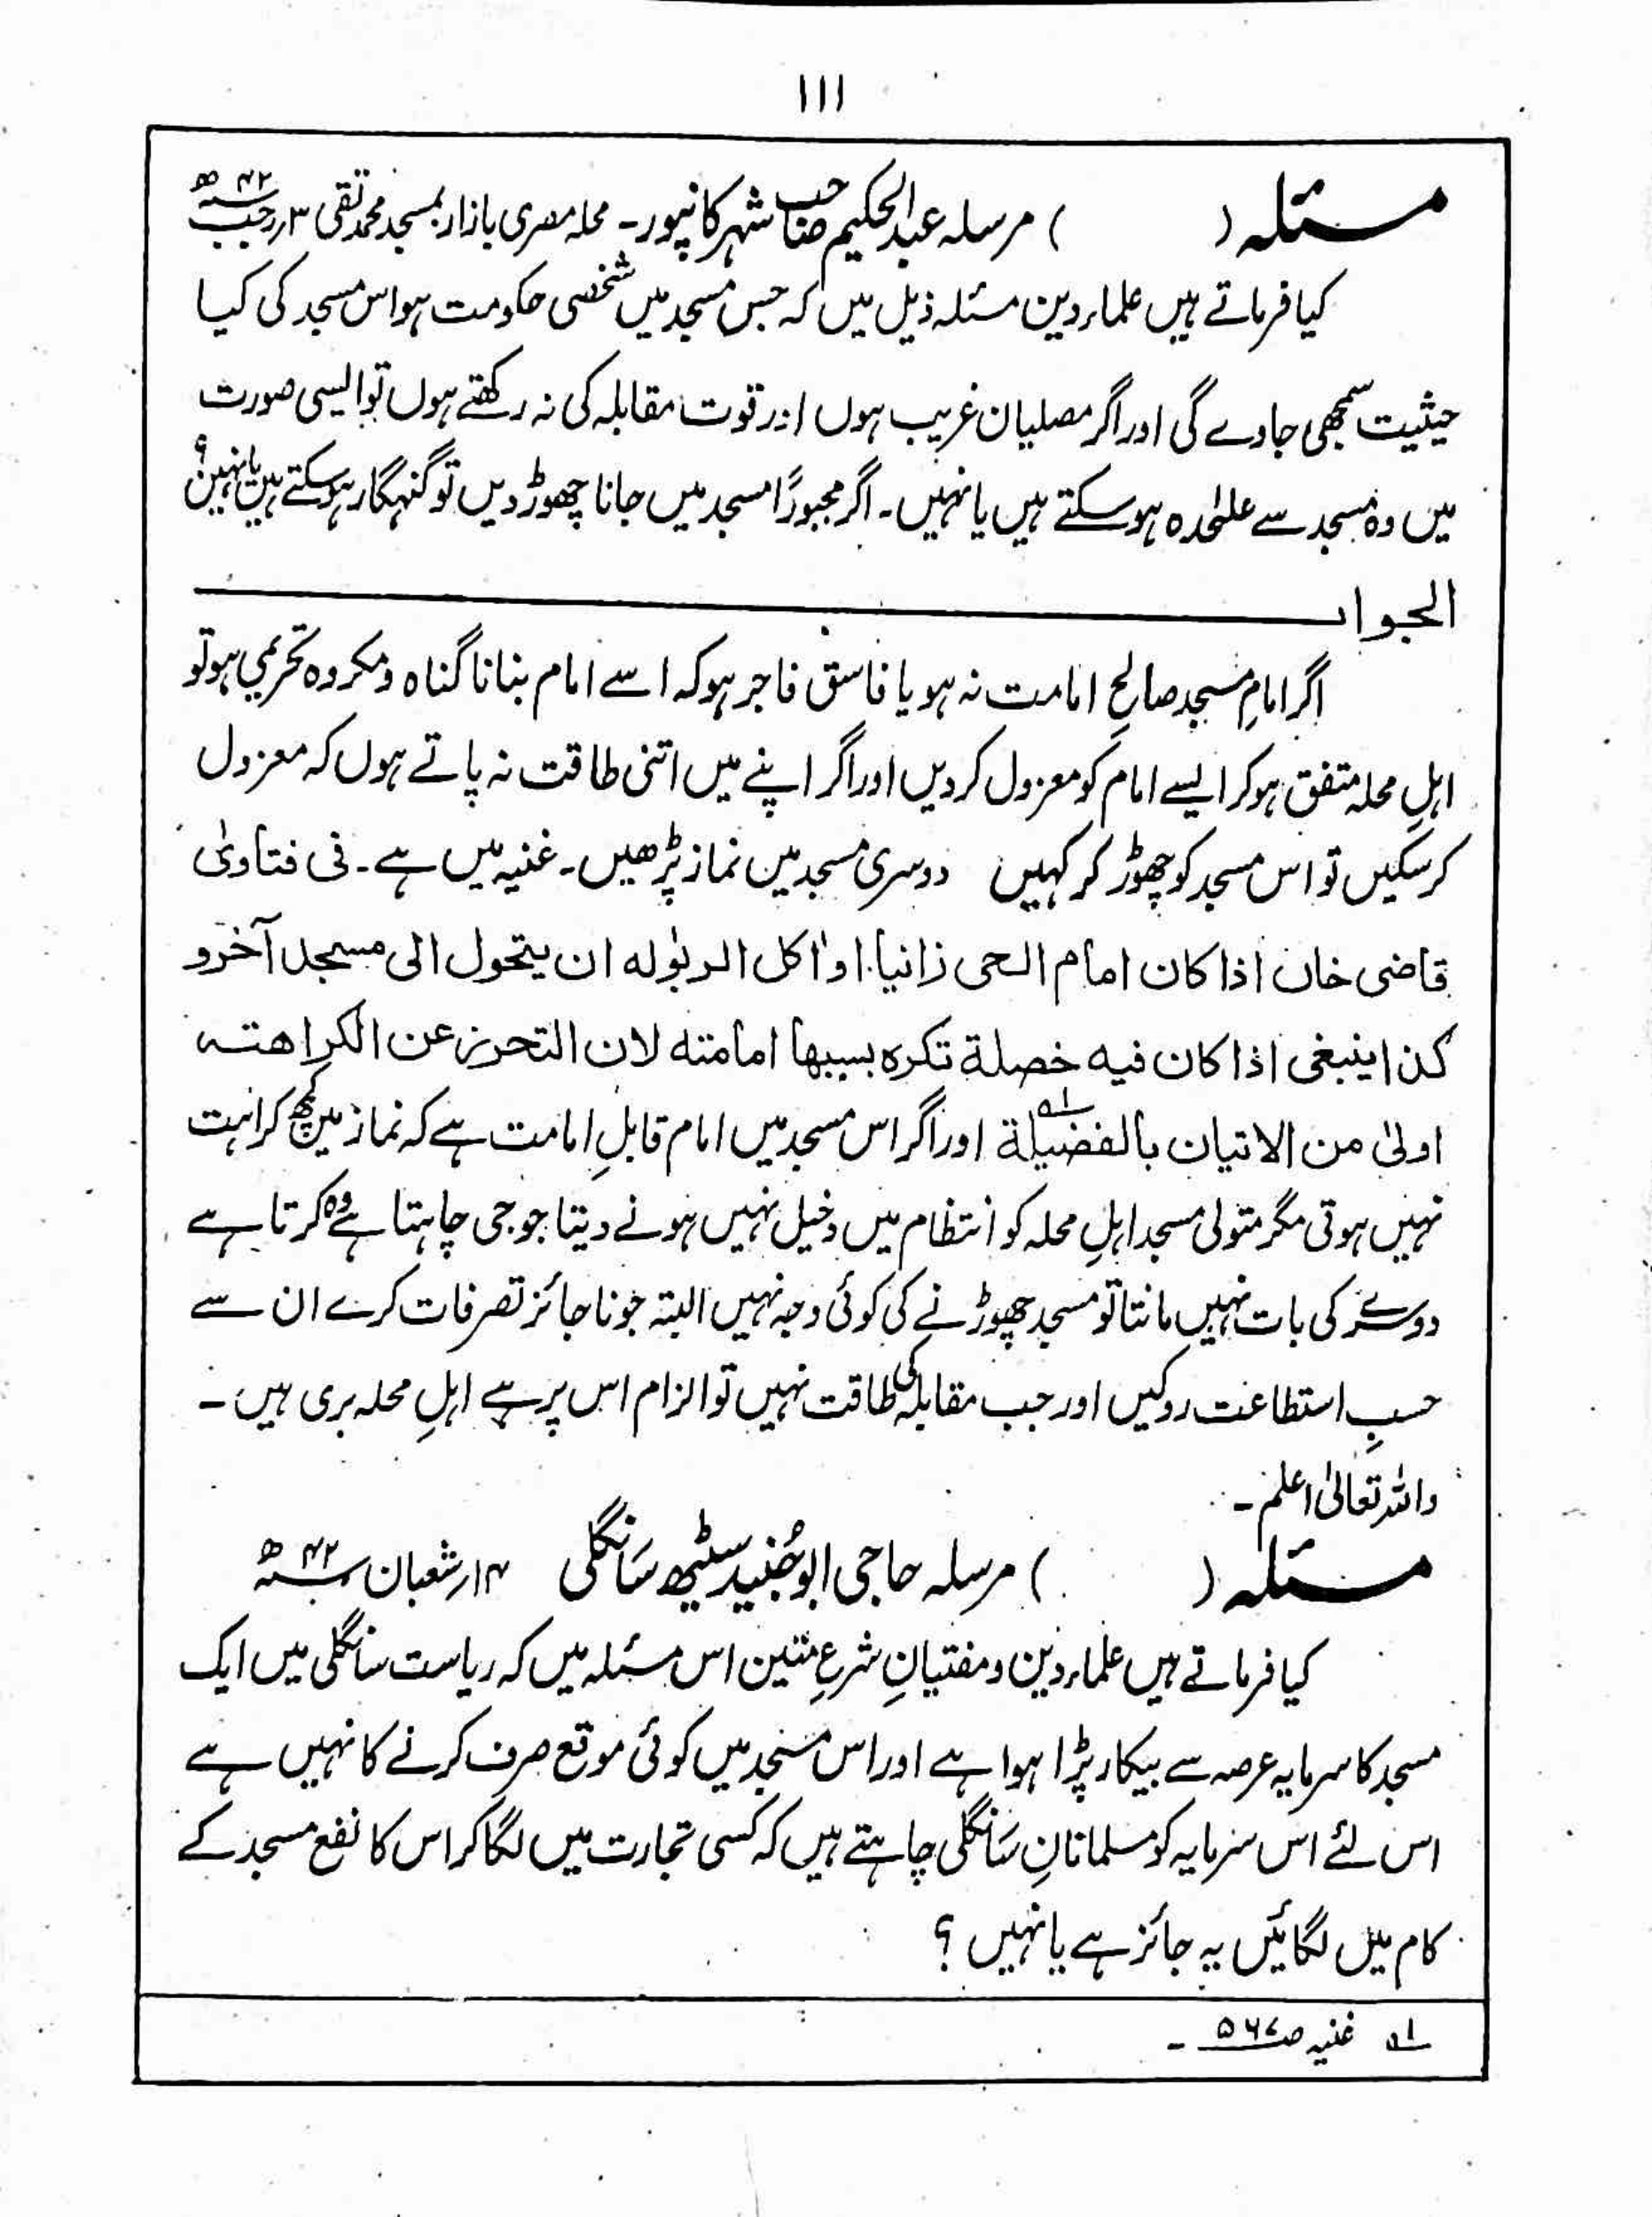 ۱۱۱
مسئلہ ( ) مرسلہ عبدالحکیم صاحب شہر کانپور۔ محلہ مصری بازار بمسجد محمد تقی ۳؍رجب ۴۲ھ
کیا فرماتے ہیں علماء دین مسئلہ ذیل میں کہ جس مسجد میں شخصی حکومت ہو اس مسجد کی کیا
حیثیت سمجھی جاوے گی اور اگر مصلیان غریب ہوں اور قوت مقابلہ کی نہ رکھتے ہوں تو ایسی صورت
میں وہ مسجد سے علٰحدہ ہو سکتے ہیں یا نہیں۔ اگر مجبورًا مسجد میں جانا چھوڑ دیں تو گنہگار ہو سکتے ہیں یا نہیں؟
الجواب
اگر امامِ مسجد صالحِ امامت نہ ہو یا فاسق فاجر ہو کہ اسے امام بنانا گناہ و مکروہ تحریمی ہو تو
اہلِ محلہ متفق ہو کر ایسے امام کو معزول کر دیں اور اگر اپنے میں اتنی طاقت نہ پاتے ہوں کہ معزول
کر سکیں تو اس مسجد کو چھوڑ کر کہیں دوسری مسجد میں نماز پڑھیں۔ غنیہ میں ہے۔ فی فتاویٰ
قاضی خاں اذا کان امام الحی زانیا او اٰکل الربوٰ له ان یتحول الی مسجد آخر و
کذا ینبغی اذا کان فیه خصلة تکره بسببها امامته لان التحرز عن الکراهته
اولیٰ من الاتیان بالفضیلة ۱ھ اور اگر اس مسجد میں امام قابلِ امامت ہے کہ نماز میں کچھ کراہت
نہیں ہوتی مگر متولی مسجد اہلِ محلہ کو انتظام میں دخیل نہیں ہونے دیتا جو جی چاہتا ہے وہ کرتا ہے
دوسرے کی بات نہیں مانتا تو مسجد چھوڑنے کی کوئی وجہ نہیں البتہ جو ناجائز تصرفات کرے ان سے
حسبِ استطاعت روکیں اور جب مقابلہ کی طاقت نہیں تو الزام اس پر ہے اہلِ محلہ بری ہیں۔
واللہ تعالیٰ اعلم۔
مسئلہ ( ) مرسلہ حاجی ابو جُنید سیٹھ سَانگلی ۱۴؍شعبان ۴۲ھ
کیا فرماتے ہیں علماء دین و مفتیانِ شرعِ متین اس مسئلہ میں کہ ریاست سانگلی میں ایک
مسجد کا سرمایہ عرصہ سے بیکار پڑا ہوا ہے اور اس مسجد میں کوئی موقع صرف کرنے کا نہیں ہے
اس لئے اس سرمایہ کو مسلمانانِ سَانگلی چاہتے ہیں کہ کسی تجارت میں لگا کر اس کا نفع مسجد کے
کام میں لگائیں یہ جائز ہے یا نہیں ؟
۱ھ غنیہ ص۵۶۷۔